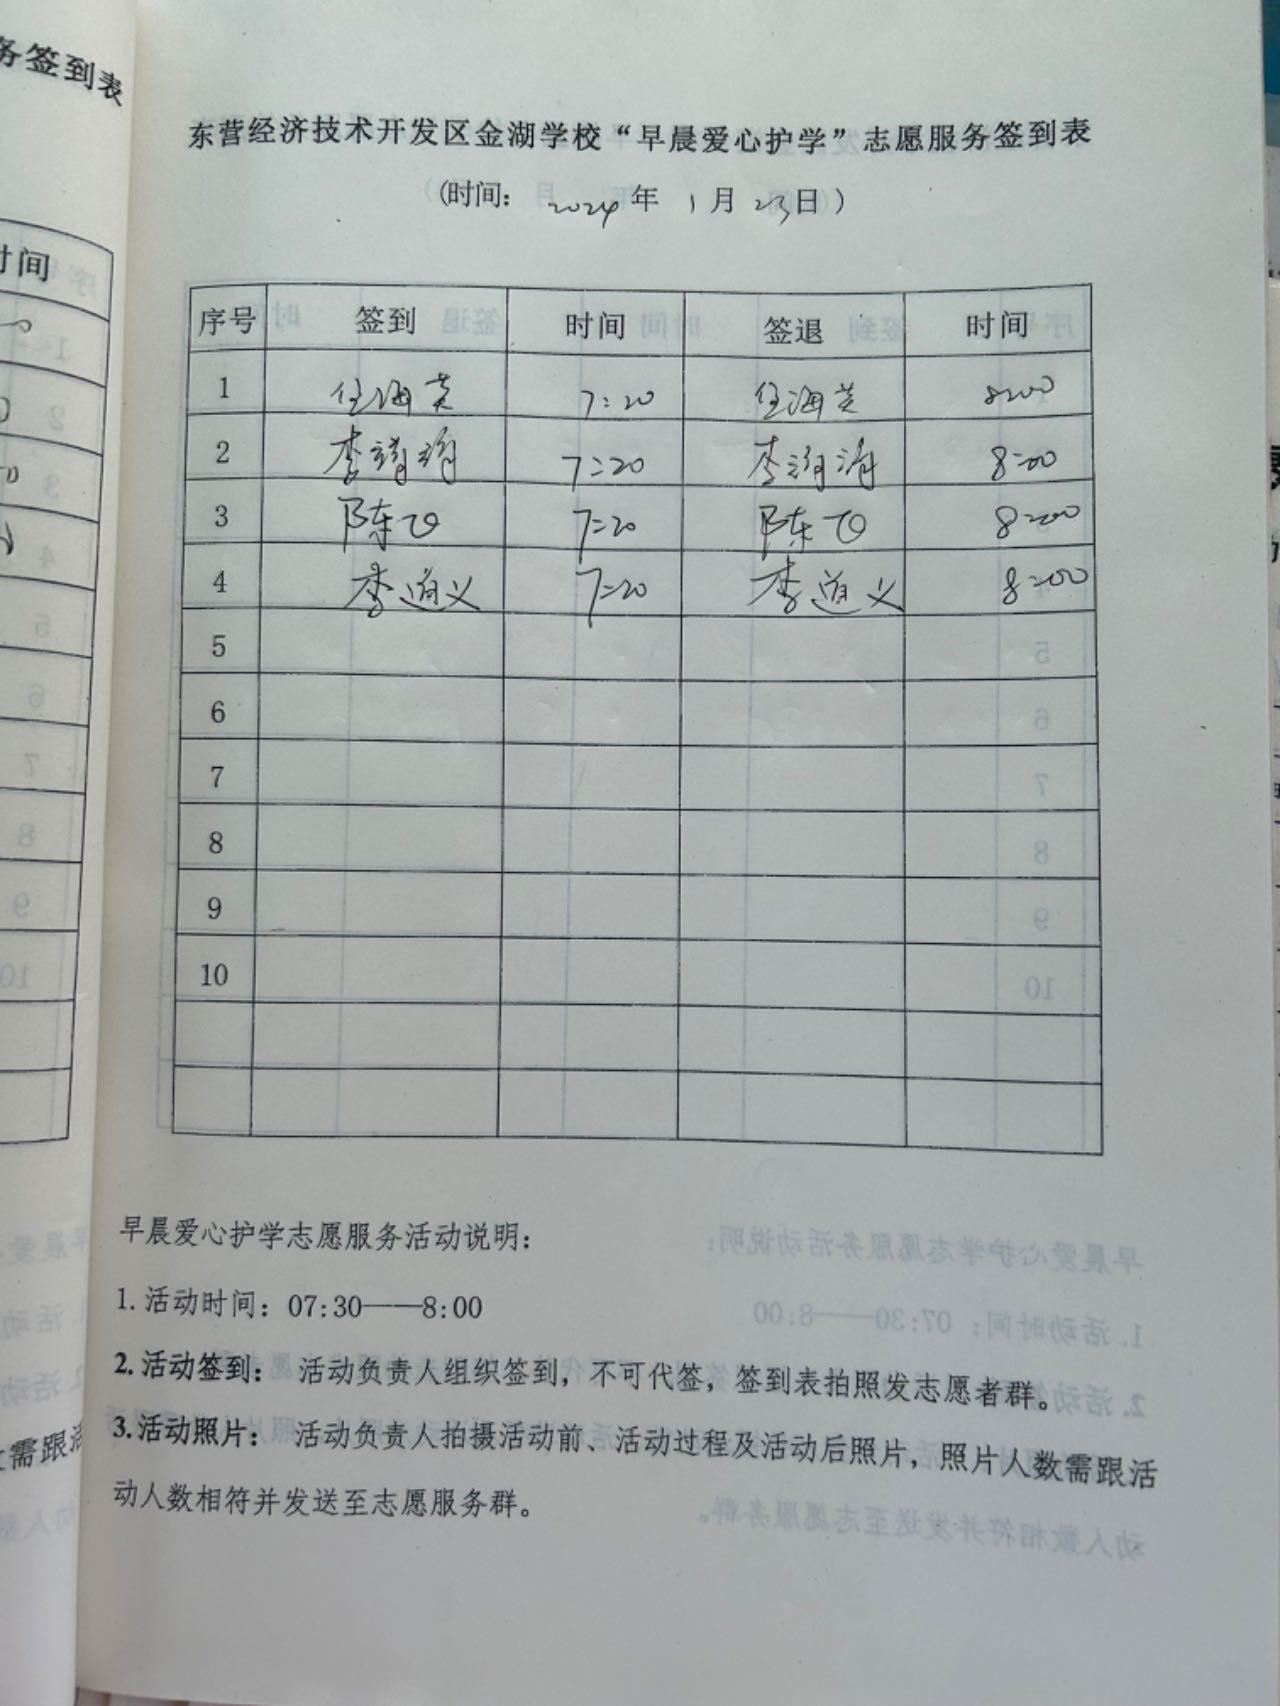 务签到表
时间
东营经济技术开发区金湖学校“早晨爱心护学”志愿服务签到表
(时间: 2024年 1月23日)
序号 签到 时间 签退 时间
1 任海英 7:20 任海英 8:00
2 李 7:20 李 8:00
3 陈飞 7:20 陈飞 8:00
4 李道义 7:20 李道义 8:00
5
6
7
8
9
10
早晨爱心护学志愿服务活动说明:
1.活动时间: 07:30——8:00
2.活动签到: 活动负责人组织签到,不可代签,签到表拍照发志愿者群。
3.活动照片: 活动负责人拍摄活动前、活动过程及活动后照片,照片人数需跟活
动人数相符并发送至志愿服务群。
需跟